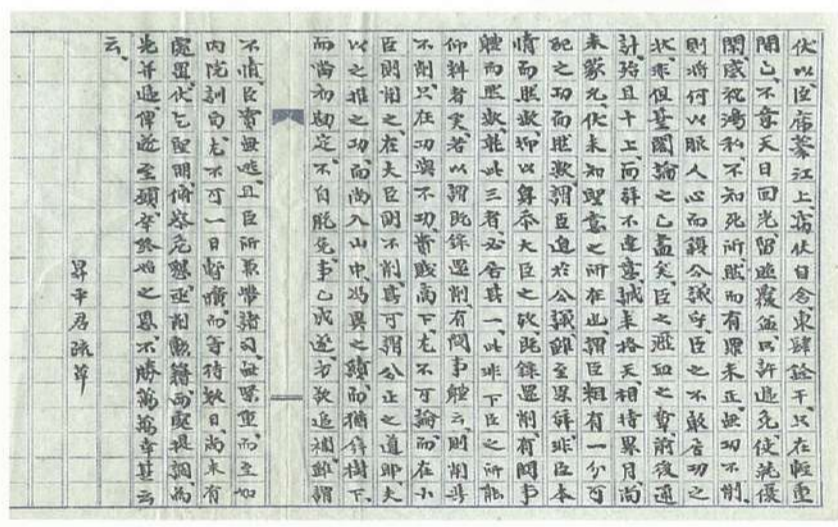 伏以臣席藁江上竊伏自念東肆餘干只在輕重
間已不意天日回光陷照覆盆只許遞免使就優
閑感祝鴻私不知死所賊而有罪未正無功不削
則將何以服人心而謝公議乎臣之不敢居功之
狀非但臺閣論之已盡矣臣之瀝血之章前後通
計殆且十上而辭不達意誠未格天相持累月尚
未蒙允伏未知聖意之所在也謂臣粗有一分可
紀之功而然歟謂臣迫於公議雖至累辭非臣本
情而然歟抑以身忝大臣之後旣錄還削有關事
體而然歟於此三者必居其一此非下臣之所能
仰料者矣若以謂旣錄還削有關事體云則削與
不削只在功與不功貴賤高下尤不可論而在小
臣則削之在大臣則不削其可謂公正之道耶夫
以之推之功而尚入山中馮異之績而猶倚樹下
而當初勘定不自脫免事已成遂方欲追補雖謂
不情臣實無逃且臣所兼帶諸司無累重而至如
內院訓局尤不可一日暫曠而等待數日尚未有
處置伏乞聖明俯察危懇亟削勳籍而處提調而
光并遞俾遂至願卒終始之恩不勝萬萬幸甚云
云
昇平君疏草